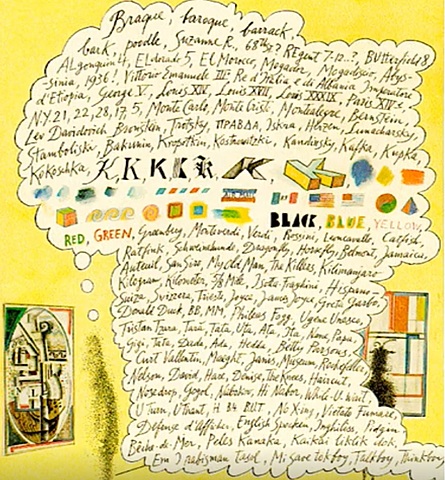 Braque, baroque, barrack,
bark, poodle, Suzanne R., 68th St? REgent 7-12..?, BUtterfield 8,
ALgonquin 4, ELdorado 5, El Morocco, Mogador, Mogadiscio, Abys-
sinia, 1936! Vittorio Emanuele III, Re d'Italia e di Albania Imperatore
d'Etiopia, George V, Louis XIV, Louis XVII, Louis XXXIX, Paris XIVe,
N.Y. 21, 22, 28, 17, 5, Monte Carlo, Monte Cristi, Montealegre, Bernstein
Lev Davidovich Bronstein, Trotsky, ПРАВДА, Iskra, Herzen, Lunacharsky,
Stamboliski, Bakunin, Kropotkin, Kostrowitzki, Kandinsky, Kafka, Kupka,
Kokoschka, K, K, K, K, K, K, K,
BLACK, BLUE, YELLOW,
RED, GREEN, Greenberg, Monteverdi, Verdi, Rossini, Leoncavallo, Catfish,
Ratfink, Schweinhunde, Dragonfly, Horsefly, Belmont, Jamaica,
Auteuil, San Siro, My Old Man, The Killers, Kilimanjaro
Kilogram, Kilometer, 78 Mill., Isotta Fraschini, Hispano
Suiza, Svizzera, Trieste, Joyce, James Joyce, Greta Garbo,
Donald Duck, BB, MM, Phileas Fogg, Ugene Unesco,
Tristan Tzara, Tara, Tata, Uta, Ata, Ita, Kima, Papa,
Gigi, Tati, Dada, Ada, Hedda, Betty Parsons,
Curt Valentin, Maeght, Janis, Museum, Rockefeller
Nelson, David, Hare, Denise, The Knees, Haircut,
Nosedrop, Gogol, Nabokov, Hi Nabor, While-U-wait
U Turn, UThant, H 84 BUT, No King, Vietato Fumare,
Défense d'afficher, English Spoken, Inghiliss, Pidgin
Bêche-de-Mer, Peles Kanaka, Kaikai liklik dok,
Em I rabisman tasol, Mi save tokboy, Talkboy, Thinkboy